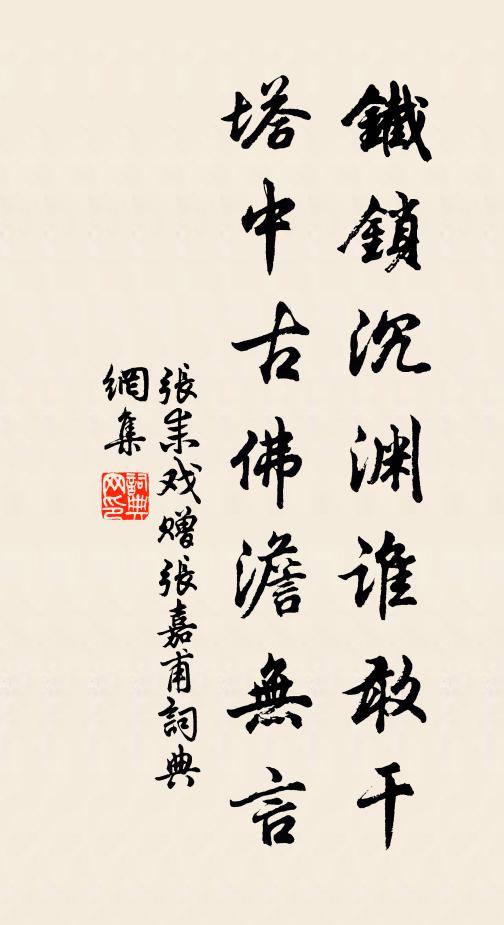 鐵鎖沉渊誰敢干
塔中古佛澹無言
張耒戏贈張嘉甫詞典
網集
詞典
网印